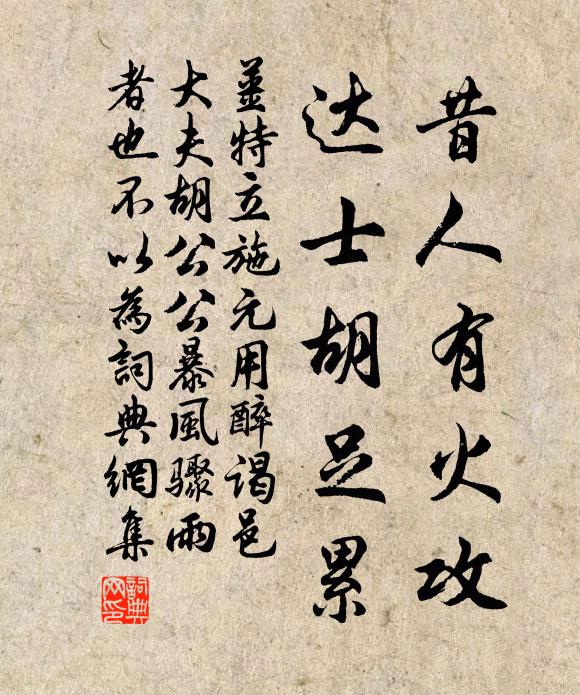 昔人有火攻
达士胡足累
姜特立施元用醉谒邑
大夫胡公公暴风骤雨
者也不以为词典网集
詞典
文印